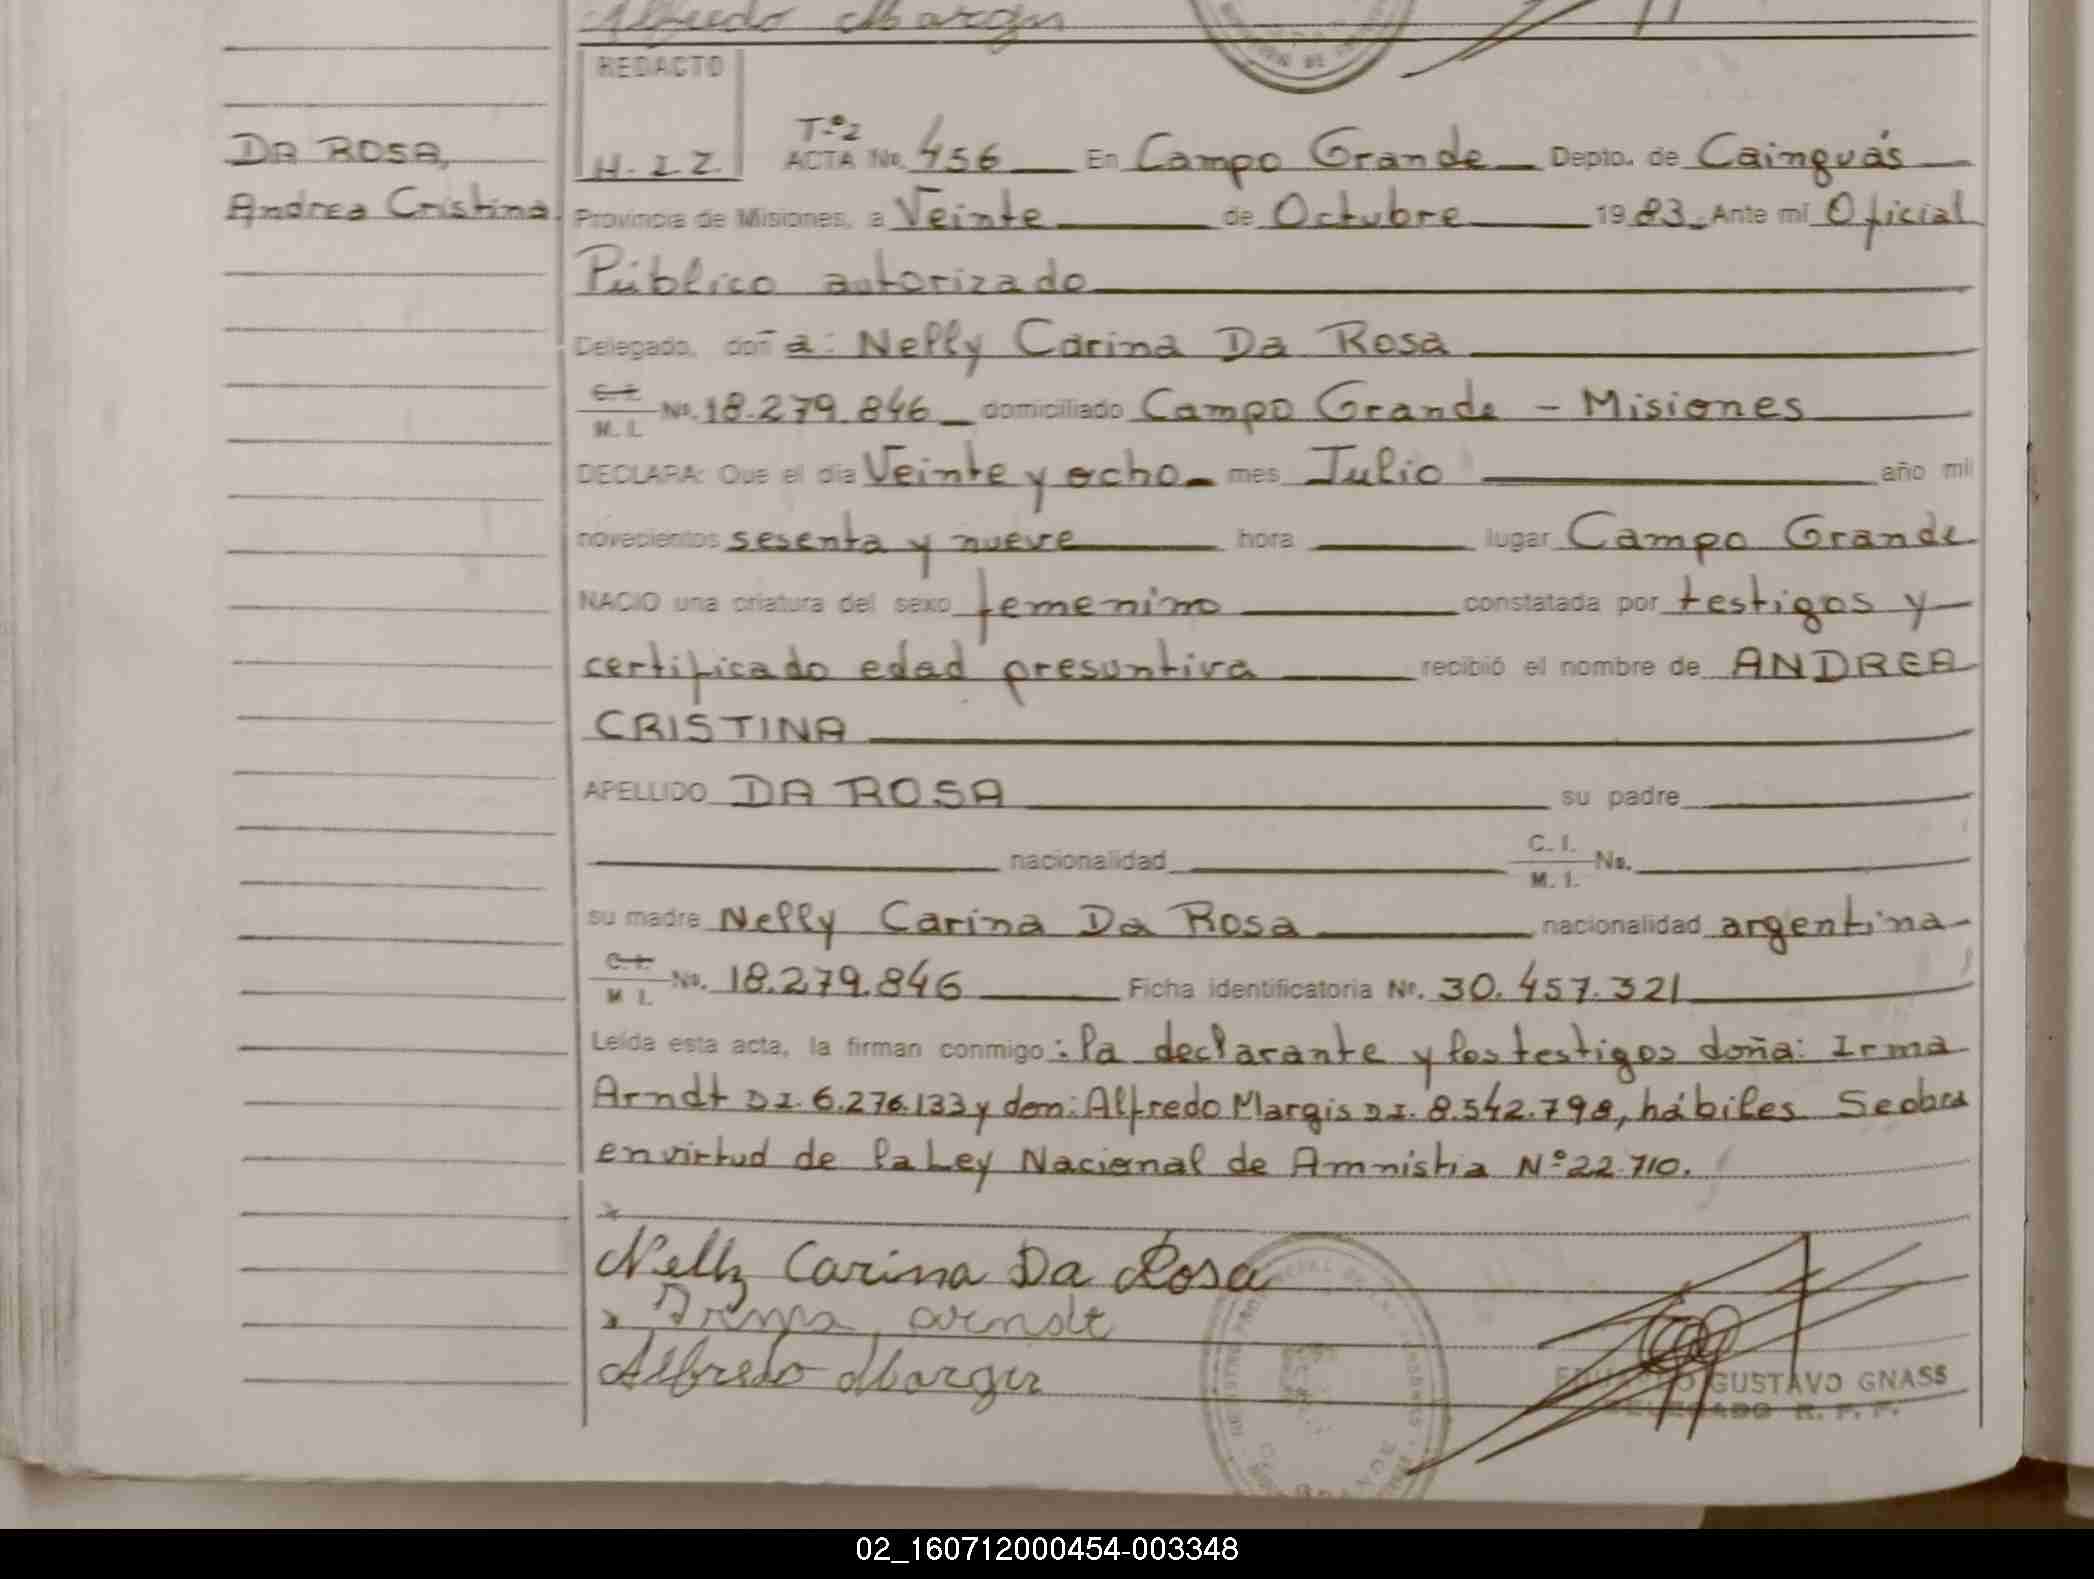 Alfredo Margis
REDACTO
H. I Z.
DA ROSA,
Andrea Cristina.
T.º2
ACTA No. 456 En Campo Grande Depto. de Cainguás
Provincia de Misiones, a Veinte de Octubre 1983. Ante mí Oficial
Público autorizado
Delegado, doña: Nelly Carina Da Rosa
C. I. M. I. No. 18.279.846 domiciliado Campo Grande - Misiones
DECLARA: Que el día Veinte y ocho mes Julio año mil
novecientos sesenta y nueve hora lugar Campo Grande
NACIO una criatura del sexo femenino constatada por testigos y
certificado edad presuntiva recibió el nombre de ANDREA
CRISTINA
APELLIDO DA ROSA su padre
nacionalidad C. I. M. I. No.
su madre Nelly Carina Da Rosa nacionalidad argentina
C. I. M. I. No. 18.279.846 Ficha identificatoria No. 30.457.321
Leída esta acta, la firman conmigo: la declarante y los testigos doña: Irma
Arndt DI. 6.276.133 y don: Alfredo Margis DI. 8.542.798, hábiles Seobra
en virtud de la Ley Nacional de Amnistia Nº 22.710.
Nelly Carina Da Rosa
Irma arndt
Alfredo Margis
GUSTAVO GNASS
DELEGADO R. P. P.
02_160712000454-003348